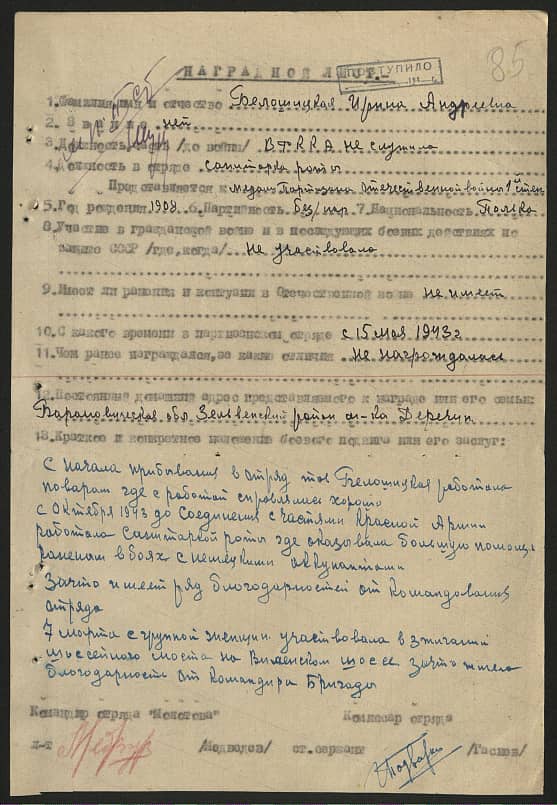 НАГРАДНОЙ ЛИСТ.
ПОСТУПИЛО
85
1.Фамилия, имя и отчество Белошицкая Ирина Андреевна
2. Звание нет
3.Должность, часть /до войны/ в РККА не служила
4.Должность в отряде санитарка роты
Представляется к медали Партизана Отечественной войны 1й степ
5.Год рождения 1908 6.Партийность Без/пар. 7.Национальность Полька
8.Участие в гражданской войне и в последующих боевых действиях по
защите СССР /где, когда/ не участвовала
9.Имеет ли ранения и контузии в Отечественной войне не имеет
10.С какого времени в партизанском отряде с 15 мая 1943г
11.Чем ранее награждался, за какие отличия не награждалась
12.Постоянный домашний адрес представляемого к награде или его семьи:
Барановичская обл Зельвенский район м-ко Деречин
13.Краткое и конкретное изложение боевого подвига или его заслуг:
с начала прибывания в отряд тов Белошицкая работала
поваром где с работой справлялась хорошо
с Октября 1943 до Соединения с частями Красной Армии
работала Санитаркой роты где оказывала большую помощь
раненым в боях с немецкими оккупантами
За что имеет ряд благодарностей от Командования
отряда
7 марта с группой женщин участвовала в зжигании
шоссейного моста на Виленском шоссе за что имела
благодарности от Командира Бригады
Командир отряда "Молотова" Комиссар отряда
л-т /Медведев/ ст.сержант